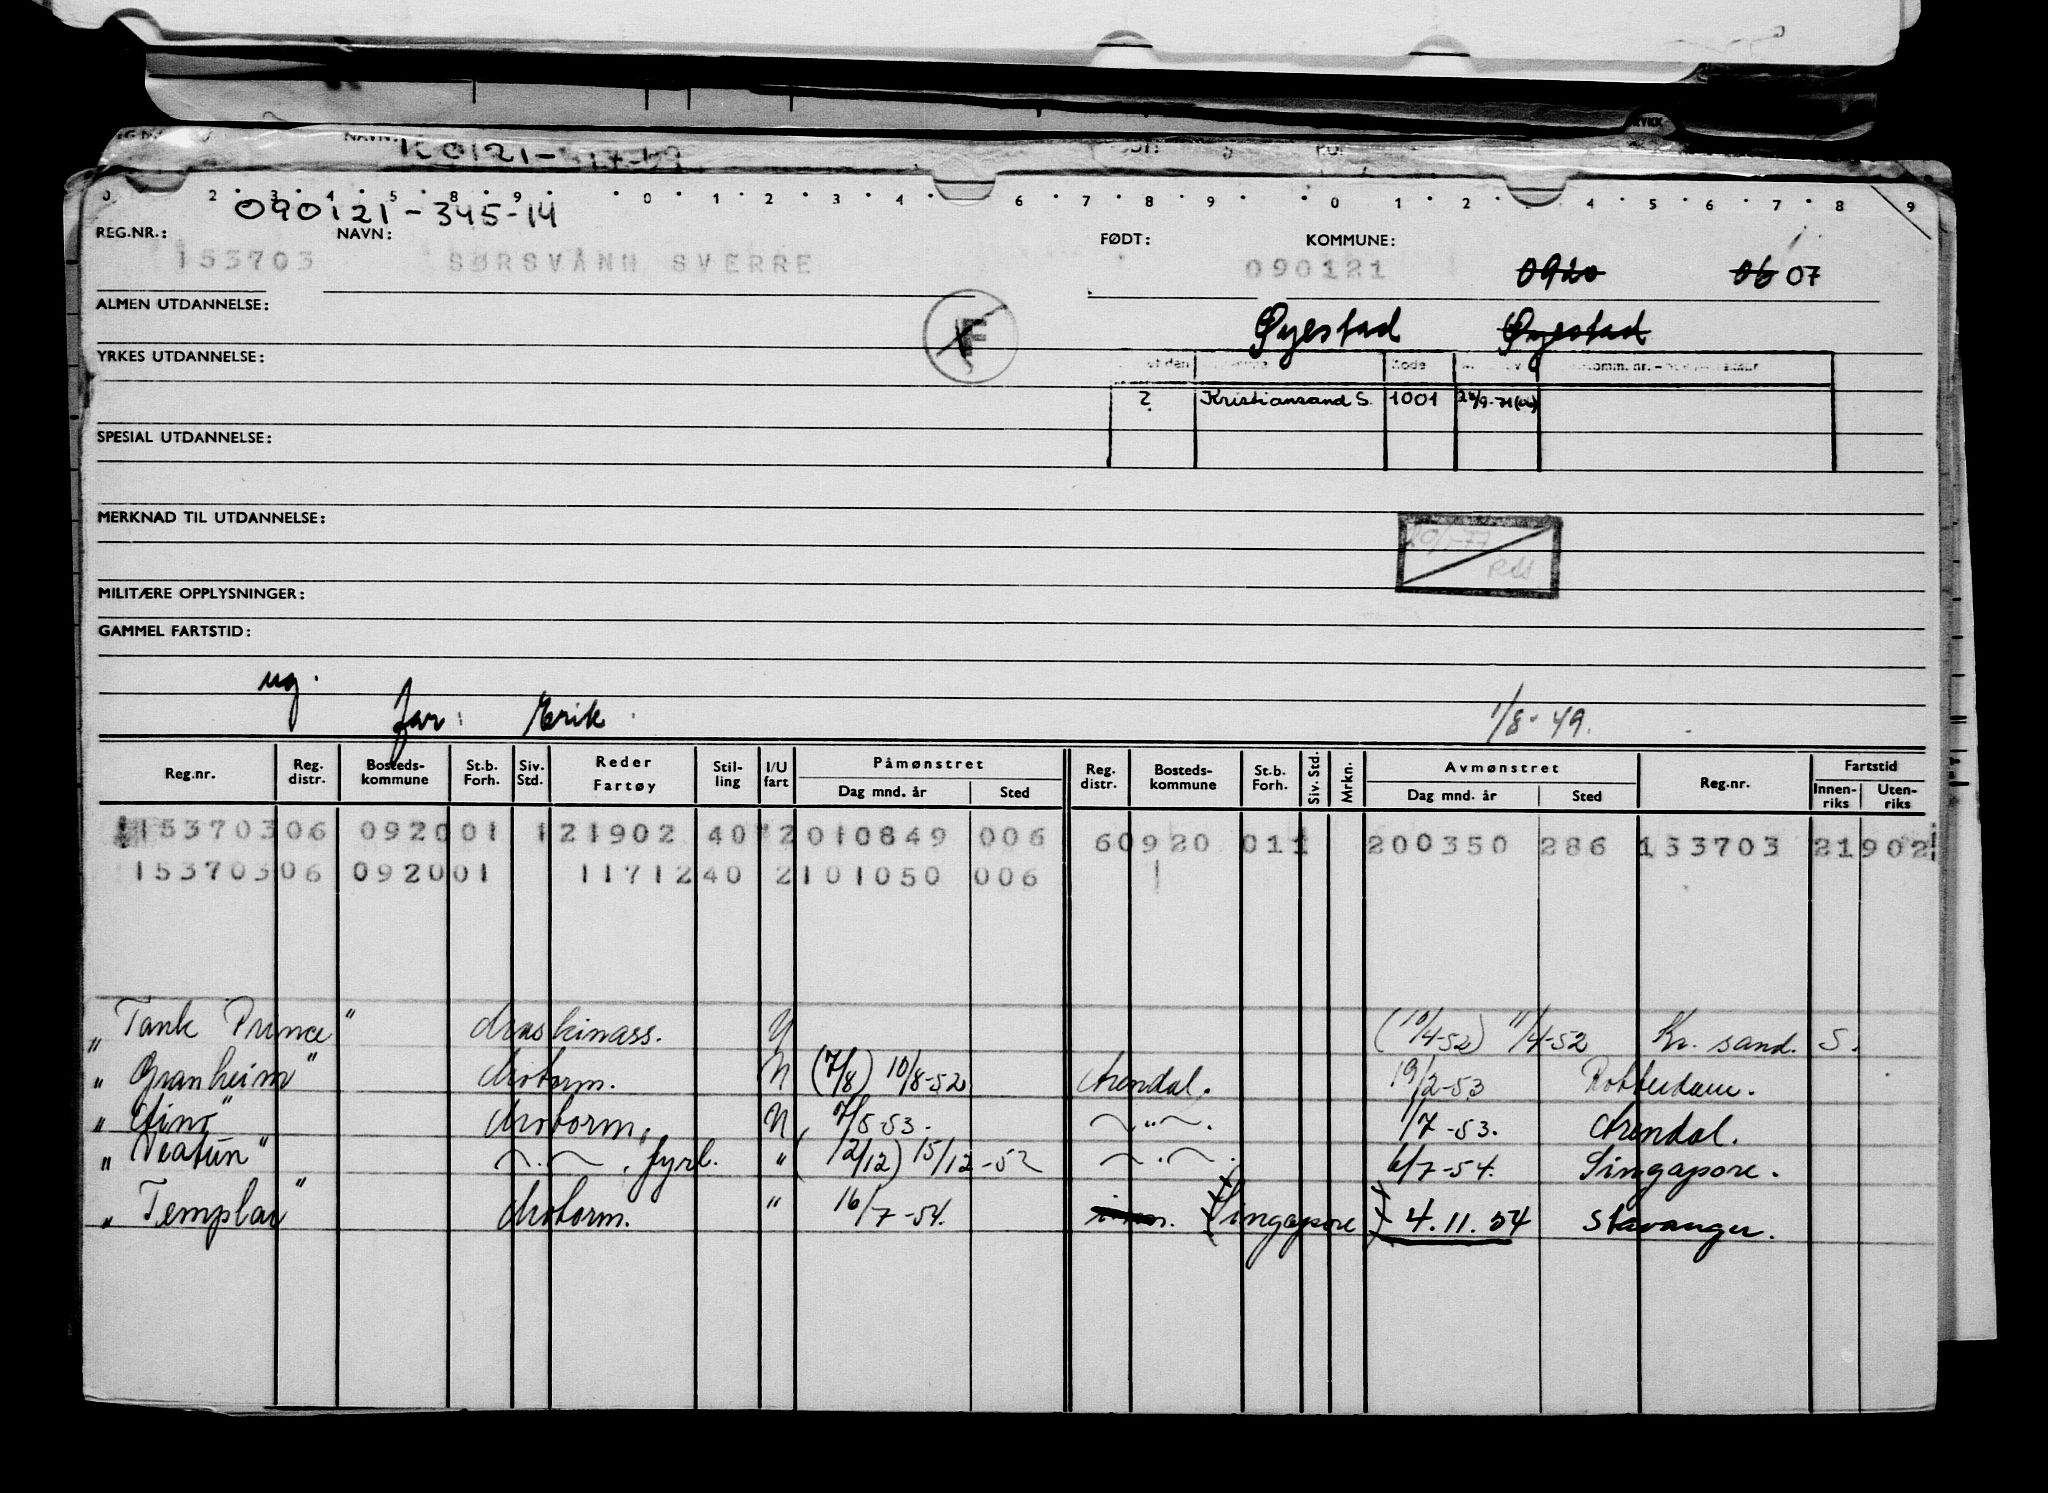 090121-345-14
REG.NR.: NAVN: FØDT: KOMMUNE:
153703 SØRSVANN SVERRE 090121 0920 06 07
ALMEN UTDANNELSE:
Øyestad Øyestad
F
YRKES UTDANNELSE:
? Kristiansand S. 1001
SPESIAL UTDANNELSE:
MERKNAD TIL UTDANNELSE:
MILITÆRE OPPLYSNINGER:
GAMMEL FARTSTID:
ug.
far: Erik 1/8-49.
Reg.nr. Reg. distr. Bosteds-kommune St.b. Forh. Siv. Std. Reder Fartøy Stil-ling I/U fart Påmønstret Dag mnd. år Sted Reg. distr. Bosteds-kommune St.b. Forh. Siv. Std. Mrkn. Avmønstret Dag mnd. år Sted Reg.nr. Fartstid Innen-riks Uten-riks
153703 06 0920 01 1 21902 40 2 010849 006 6 0920 01 1 200350 286 153703 21902
153703 06 0920 01 11712 40 2 101050 006
"Tank Prince" Maskinass. U (10/4-52) 11/4-52 Kr. sand. S.
"Granheim" Motorm. U (7/8) 10/8-52 Arendal. 19/2-53 Rotterdam.
Motorm. U 7/5 53. 1/7-53. Arendal.
fyrb. " (12/12) 15/12-52 6/7-54. Singapore.
"Templar" Motorm. " 16/7-54. (Singapore) 4.11.54 Stavanger.